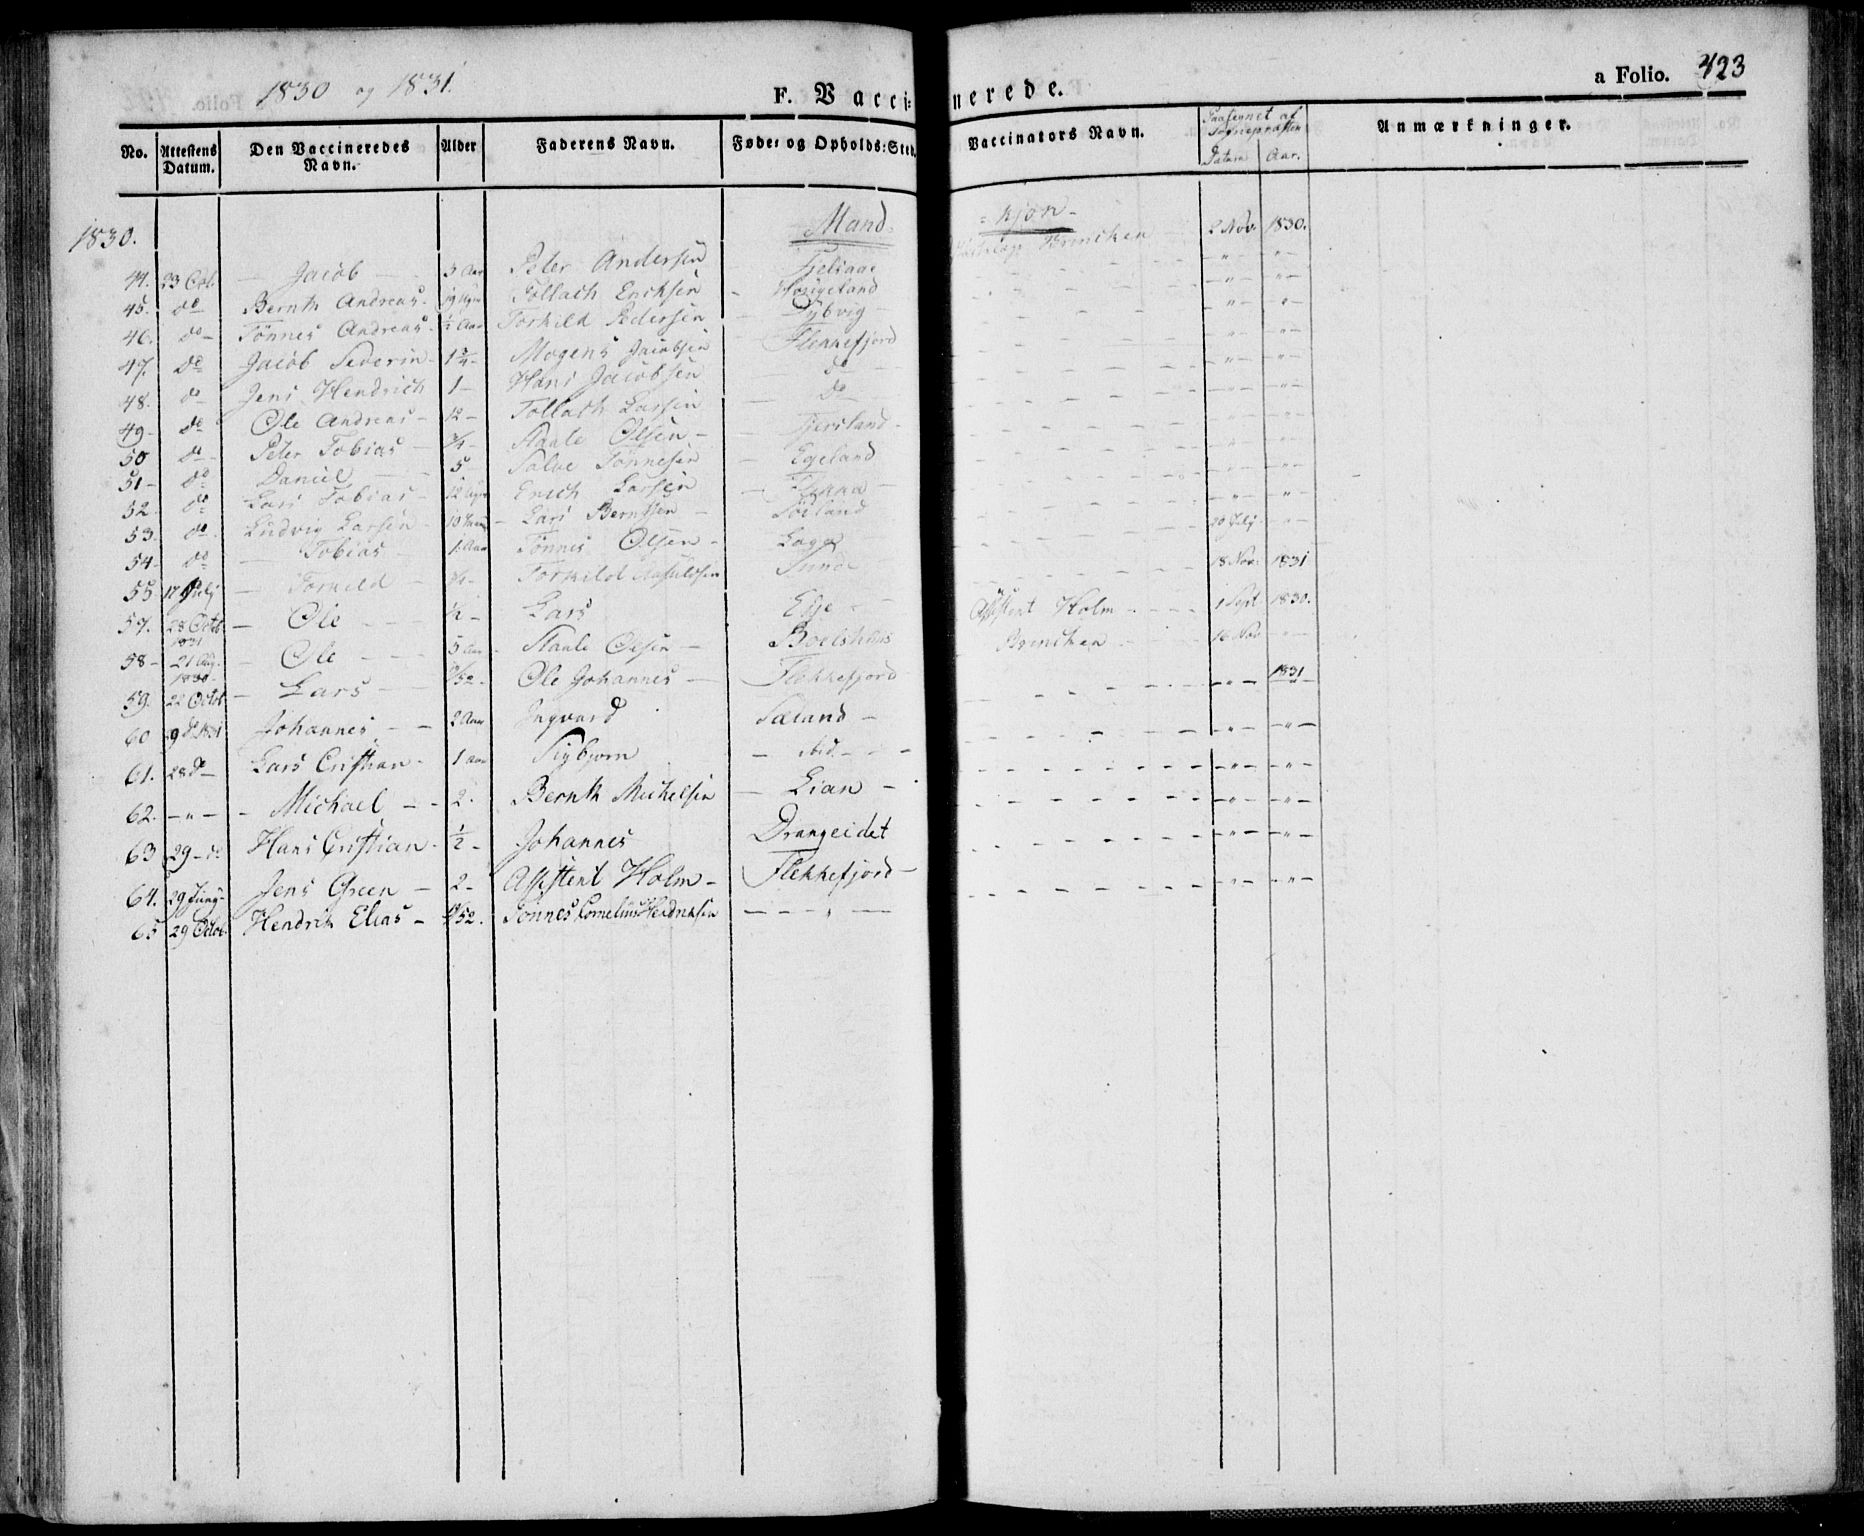 1830 og 1831.
F. Vaccinerede.
a Folio. 423
No. Attestens Datum. Den Vaccineredes Navn. Alder Faderens Navn. Føde- og Opholds-Sted. Vaccinators Navn. Datum Aar. Anmærkninger.
1830. Mand- =kjøn-
44. 23 Oct. - Jacob - 3 Aar Peter Andersen Fjelsaae Brincken 2 Nov. 1830.
45. do Bernth Andreas - 19 Ugr Tollach Erichsen - Houyeland - " - - " -
46. do Tönnes Andreas - ½ Aar Torkild Pedersen - Dybvig - - " - - " -
47. do Jacob Sederin - 1¾ - Mogens Jacobsen - Flekkefjord - " - - " -
48. do Jens Hendrich 1 - Hans Jacobsen - do - - " - - " -
49 - do Ole Andreas - 12 - Tollach Larsen - do - - " - - " -
50 do Peter Tobias - ¾ - Staale Olsen - - Fjersland - - " - - " -
51 - do Daniel - 5 - Salve Tönnesen - Egeland - " - - " -
52 - do Lars Tobias - 12 Ugr Erich Larsen - Flikka - - " - - " -
53. do Ludvig Larsen - 10 - Lars Berntsen - Söeland - " - - " -
54 - do - Tobias - 1 Aar Tönnes Olsen - Loga 20 July - " -
55 17 July - Torkild - ¾ - Torkild Sunde 18 Nov. 1831
57. 28 Octb - Ole - ½ - Lars Eeje - - Assistent Holm - 1 Sept. 1830.
58 - 1831 21 Aug. - Ole - 5 Aar - Staale Olsen - Boelshuus Brincken - 16 Nov - " -
59. 1830 22 Octb - Lars - /52 - Ole Johannes - Flekkefjord - " - 1831
60 9 do 1831 Johannes - 2 Aar Ingvard Sæland - - " - - " -
61. 28 do - Lars Cristian - 1 Aar Sigbjørn - ibid. - - " - - " -
62. - " - - Michael - 2 - Bernth Michelsen - Lian - - " - - " -
63 29 - do Hans Cristian - ½ - Johannes Drangeidet - " - - " -
64. 29 Juny - Jens Green - 2 - Assistent Holm - Flekkefjord - - " - - " -
65 29 Octob. Hendrik Elias - /52. Tönnes Cornelius Hendriksen - - " - - " - - " -